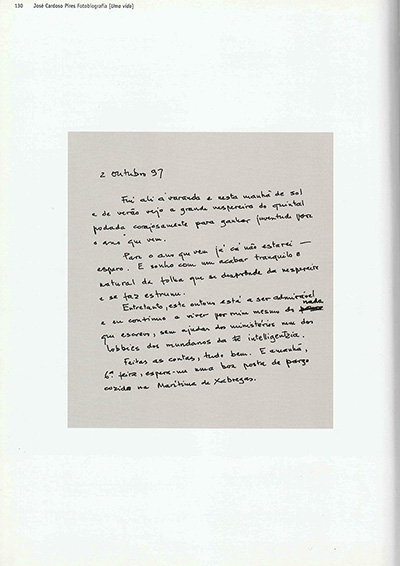 130 José Cardoso Pires Fotobiografia [Uma vida]
2 outubro 97
Fui ali à varanda e nesta manhã de sol
e de verão vejo a grande nespereira do quintal
podada corajosamente para ganhar juventude para
o ano que vem.
Para o ano que vem já cá não estarei —
espero. E sonho com um acabar tranquilo e
natural da folha que se desprende da nespereira
e se faz estrume.
Entretanto, este outono está a ser admirável
e eu continuo a viver por mim mesmo do nada
que escrevo, sem ajudas dos ministérios nem dos
lobbies dos mundanos da intelligentzia.
Feitas as contas, tudo bem. E amanhã,
6ª feira, espera-me uma boa posta de pargo
cozido na Marítima de Xabregas.